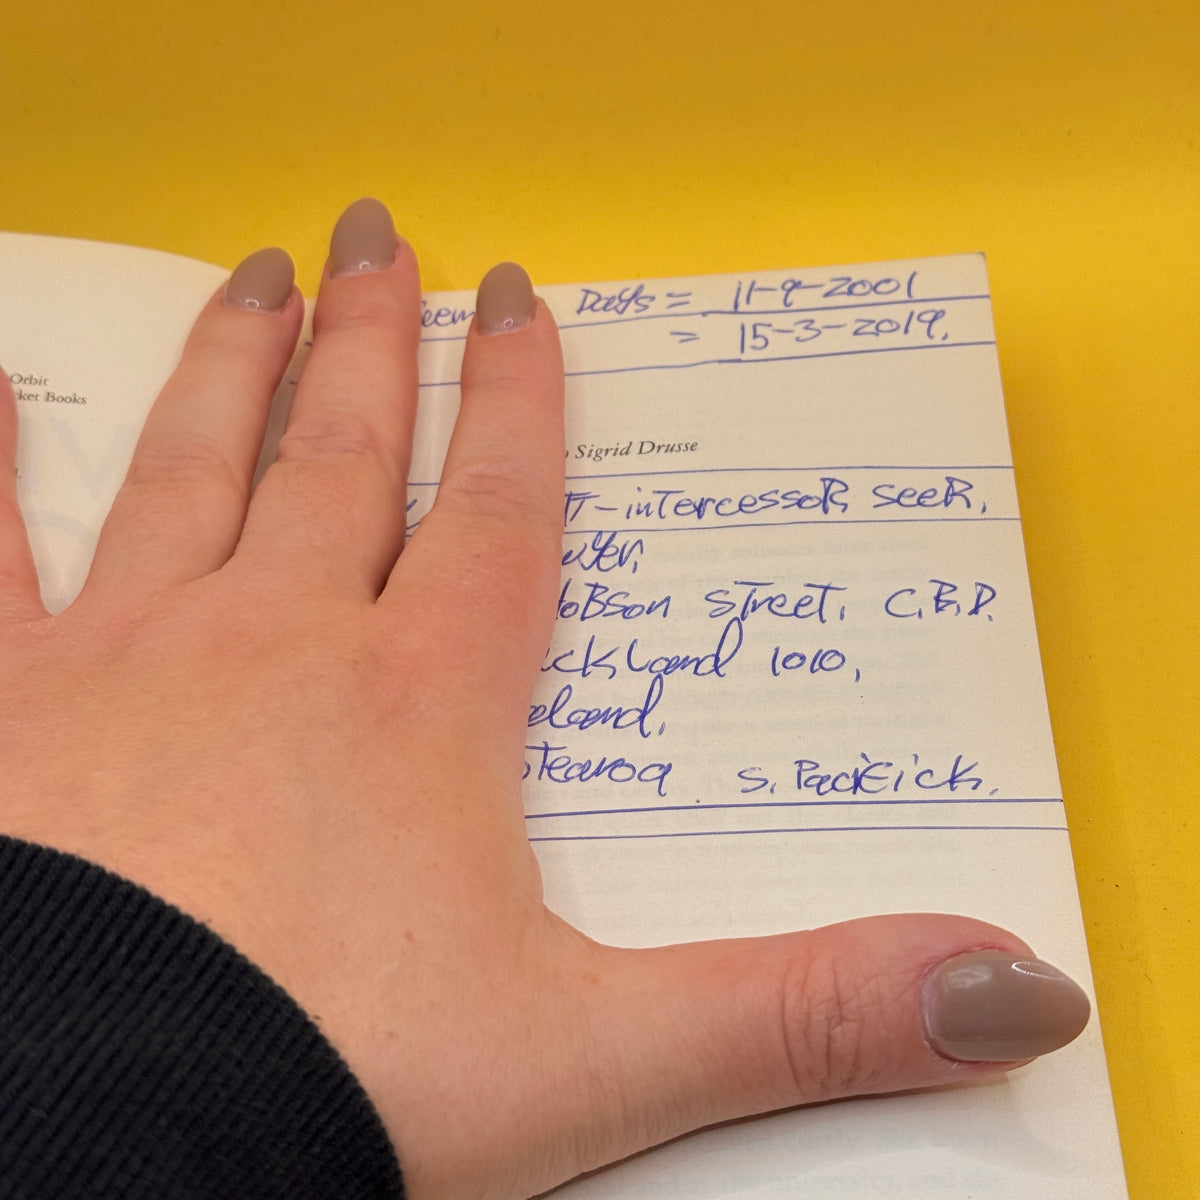 Orbit
ket Books
Days = 11-9-2001
= 15-3-2019.
Sigrid Drusse
-inTercessoR SeeR,
oBson STreeT. C.B.D.
ckland 1010,
eland.
Tearoa S. Pacific.